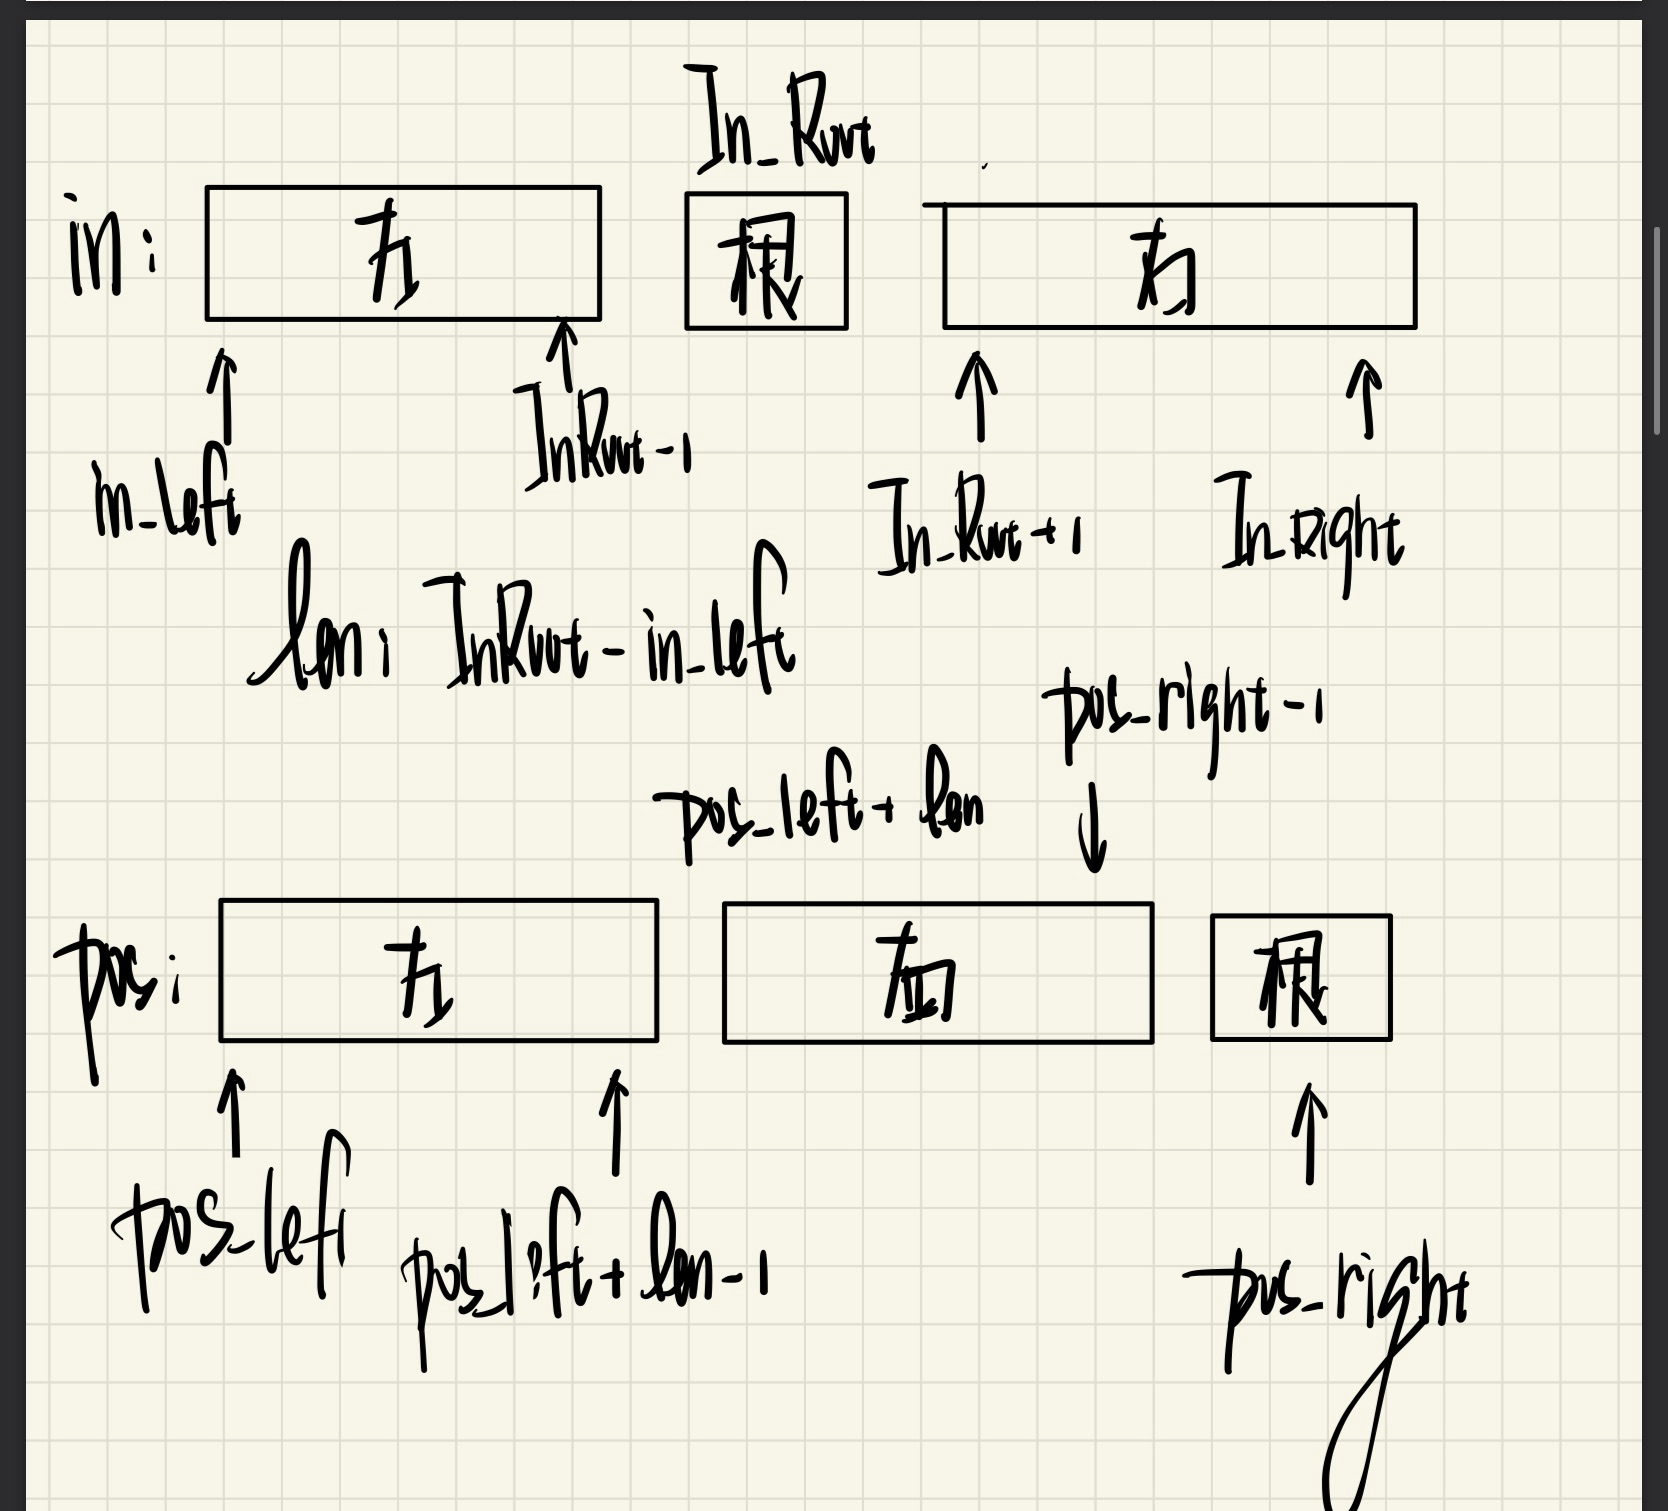 In_Root
in: 左 根 右
in_left InRoot-1 In_Root+1 In_right
len: InRoot-in_left
pos_right-1
pos_left+len
pos: 左 右 根
pos_left pos_left+len-1 pos_right